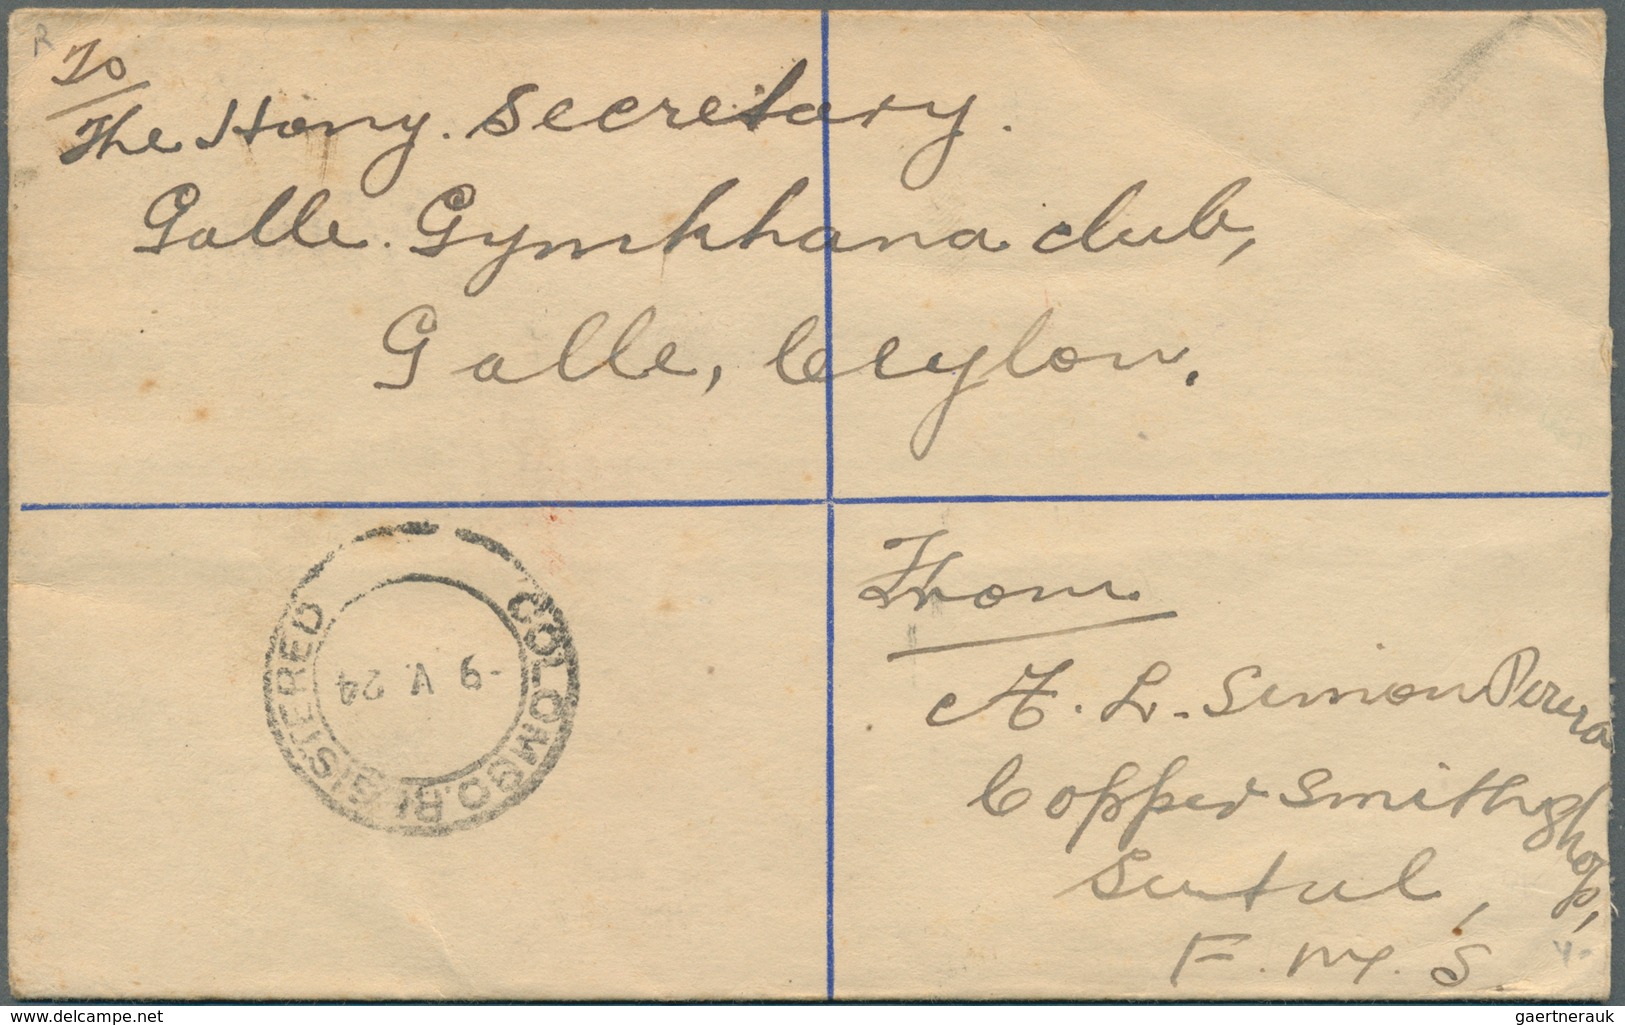 R
To
The Hony. Secretary.
Galle. Gymkhana Club,
Galle, Ceylon.
COLOMBO. REGISTERED
-9 V 24
From
A. L. Simon Perera
Coppersmithshop,
Sentul,
F. M. S.
delcampe.net
gaertnerauk